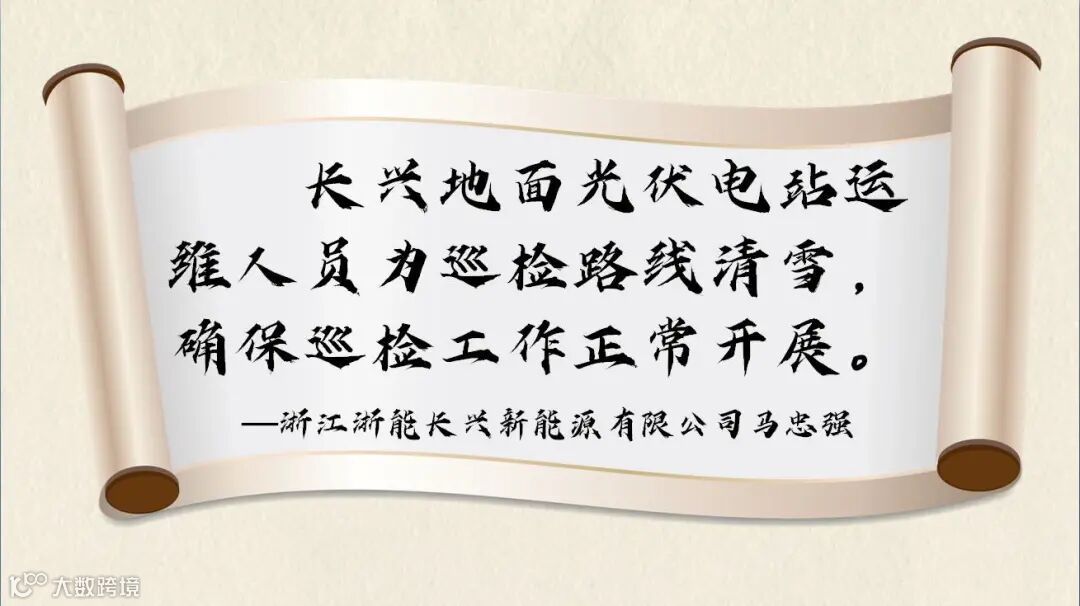 长兴地面光伏电站运
维人员为巡检路线清雪，
确保巡检工作正常开展。
—浙江浙能长兴新能源有限公司马忠强
大数跨境